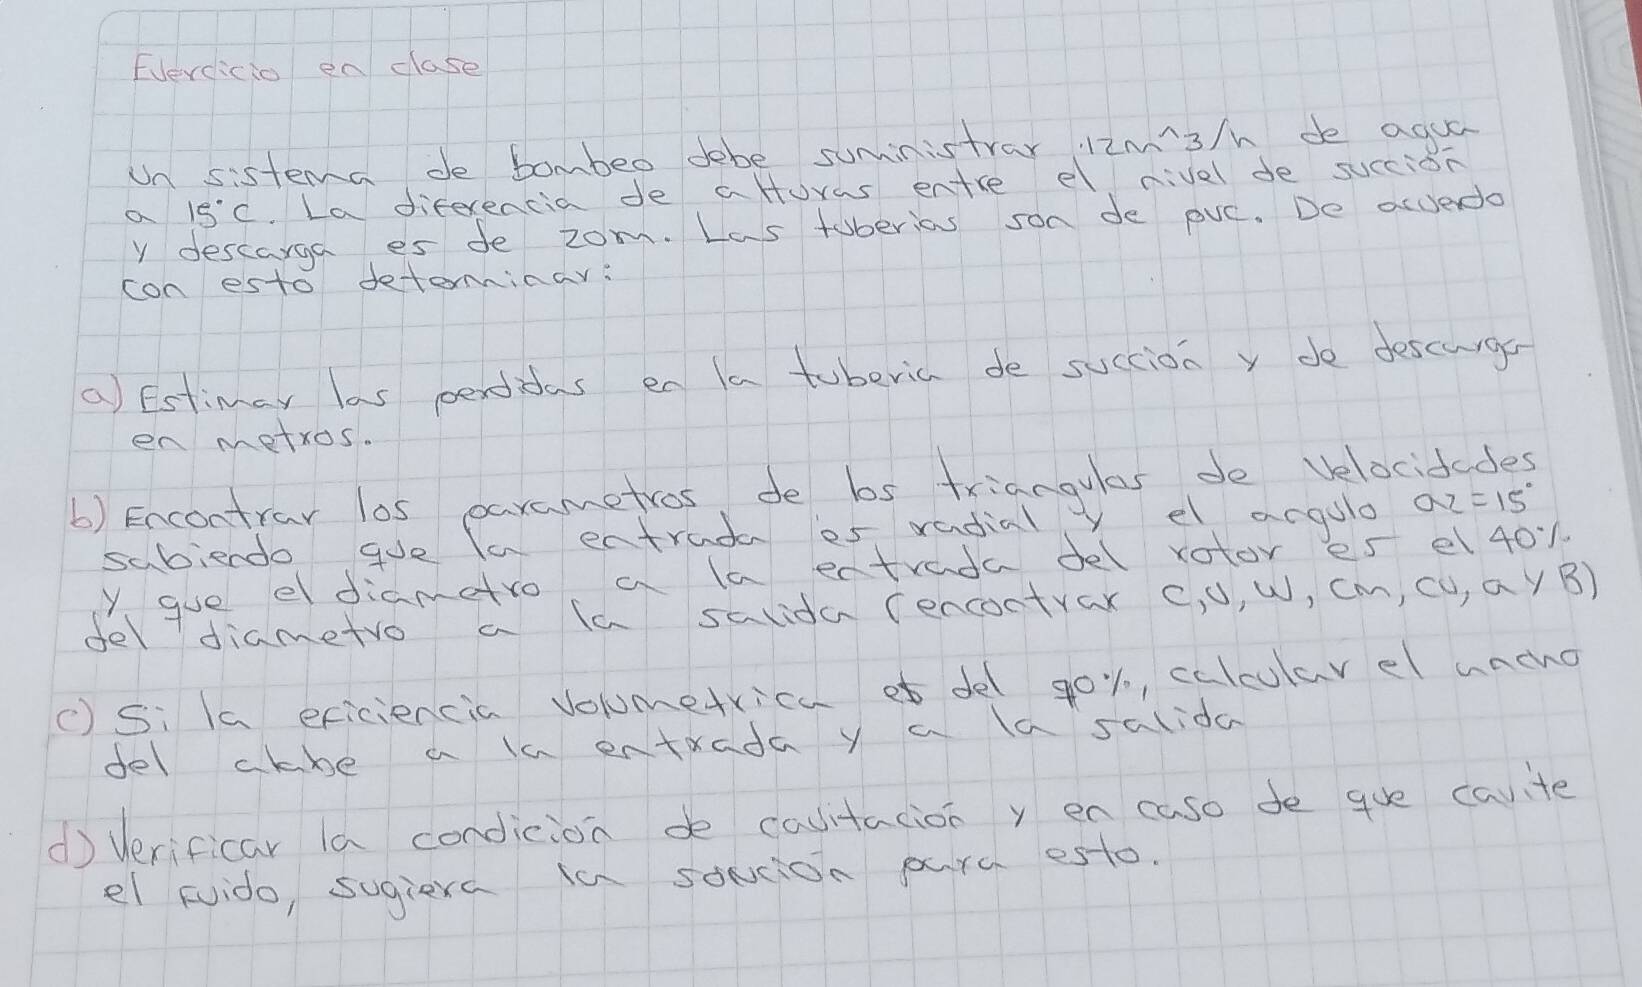 Ejercicio en clase
Un sistema de bombeo debe suministrar 12m^3/h de agua
a 15°C. La diferencia de alturas entre el nivel de succión
y descarga es de 20m. Las tuberias son de pvc. De acuerdo
con esto determinar:
a) Estimar las perdidas en la tuberia de succión y de descarga
en metros.
b) Encontrar los parametros de los triangulos de velocidades
sabiendo que la entrada es radial y el angulo a2=15°
y que el diametro a la entrada del rotor es el 40%
del diametro a la salida (encontrar c, u, w, cm, cu, a y B)
c) Si la eficiencia volumetrica es del 90%, calcular el ancho
del alabe a la entrada y a la salida
d) Verificar la condición de cavitación y en caso de que cavite
el fuido, sugiera la solución para esto.